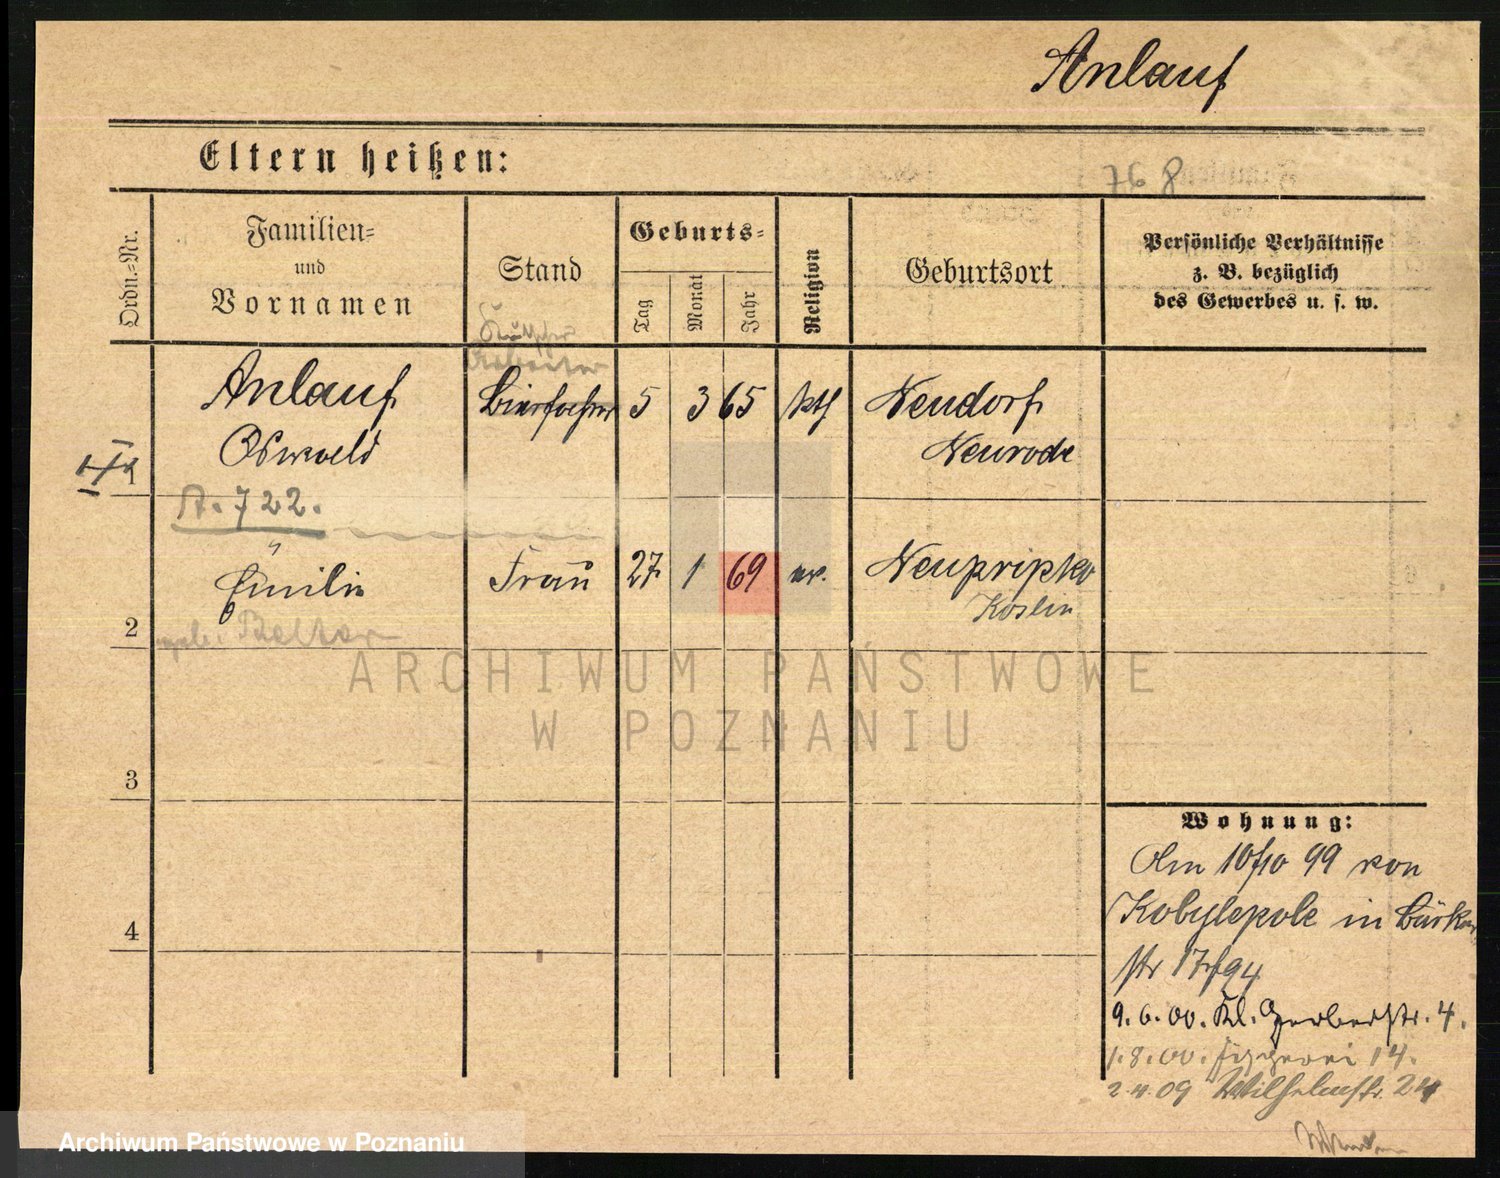 Anlauf
Eltern heißen:
768
Ordn.=Nr.
Familien=
und
Vornamen
Stand
Geburts=
Tag
Monat
Jahr
Religion
Geburtsort
Persönliche Verhältnisse
z. B. bezüglich
des Gewerbes u. s. w.
Kutscher
Arbeiter
Anlauf Bierfahrer 5 3 65 kth Neudorf
Oswald Neurode
1
A. 722.
Emilie Frau 27 1 69 ev. Neupripko
Köslin
2
3
4
Wohnung:
Am 10/10 99 von
Kobylepole in
str 17/94
9.6.00. Kl. Gerberstr. 4.
1.8.00. 14.
2.4.09 Wilhelmstr. 24
ARCHIWUM PAŃSTWOWE
W POZNANIU
Archiwum Państwowe w Poznaniu